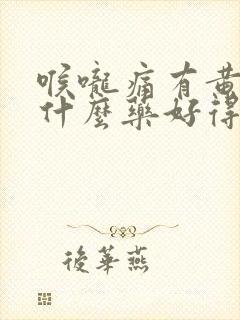 喉嚨痛有黃
什麼藥好得
後華燕